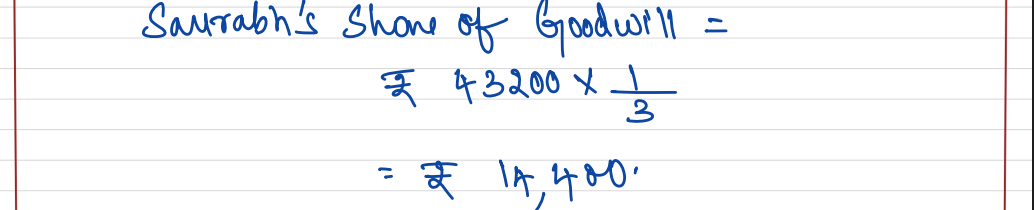 Saurabh's Share of Goodwill =
₹ 43200 × 1/3
= ₹ 14,400.